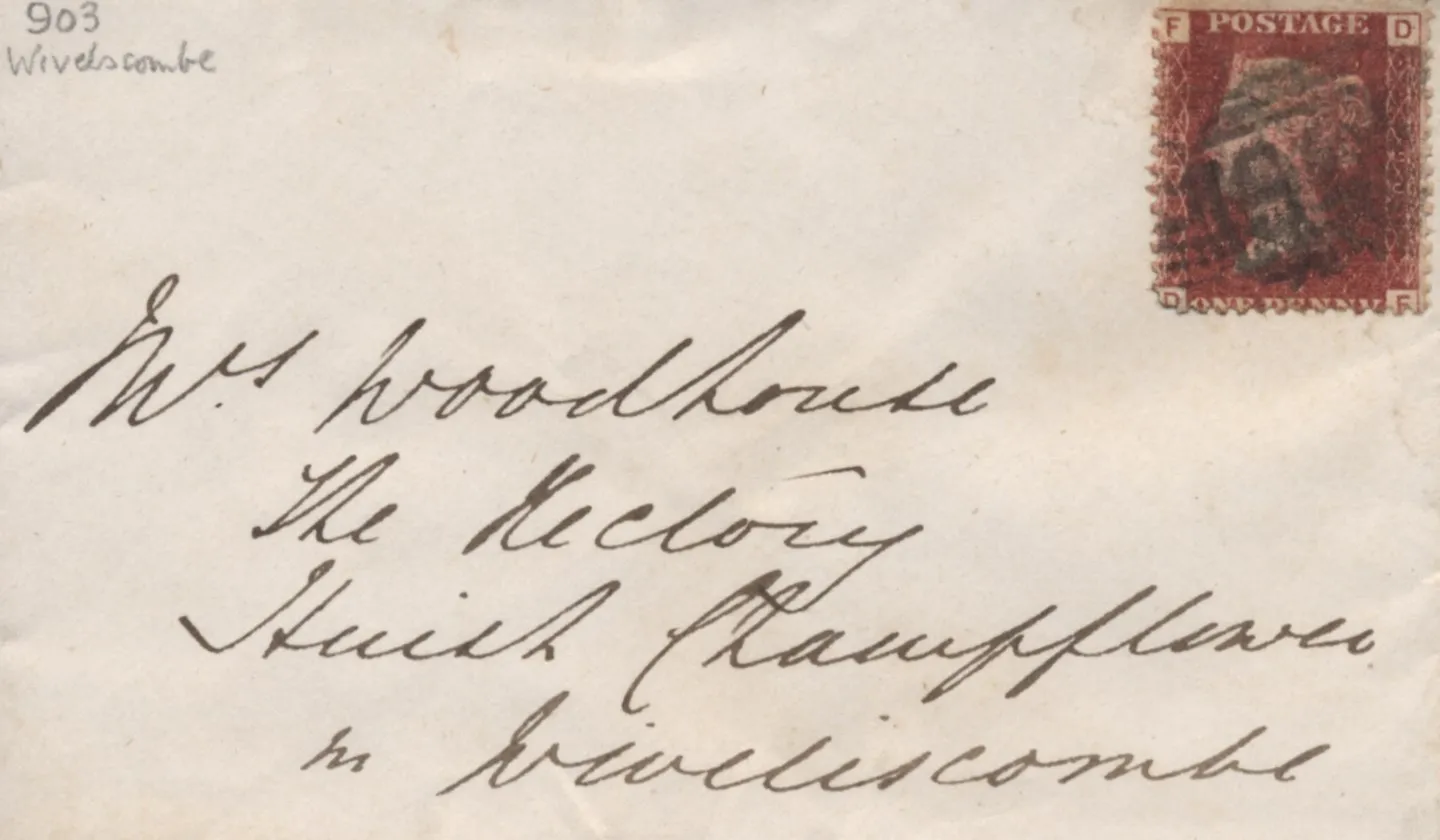 903
Wivelscombe
F POSTAGE D
D ONE PENNY F
Mrs Woodhouse
The Rectory
Huish Champflower
nr Wiveliscombe